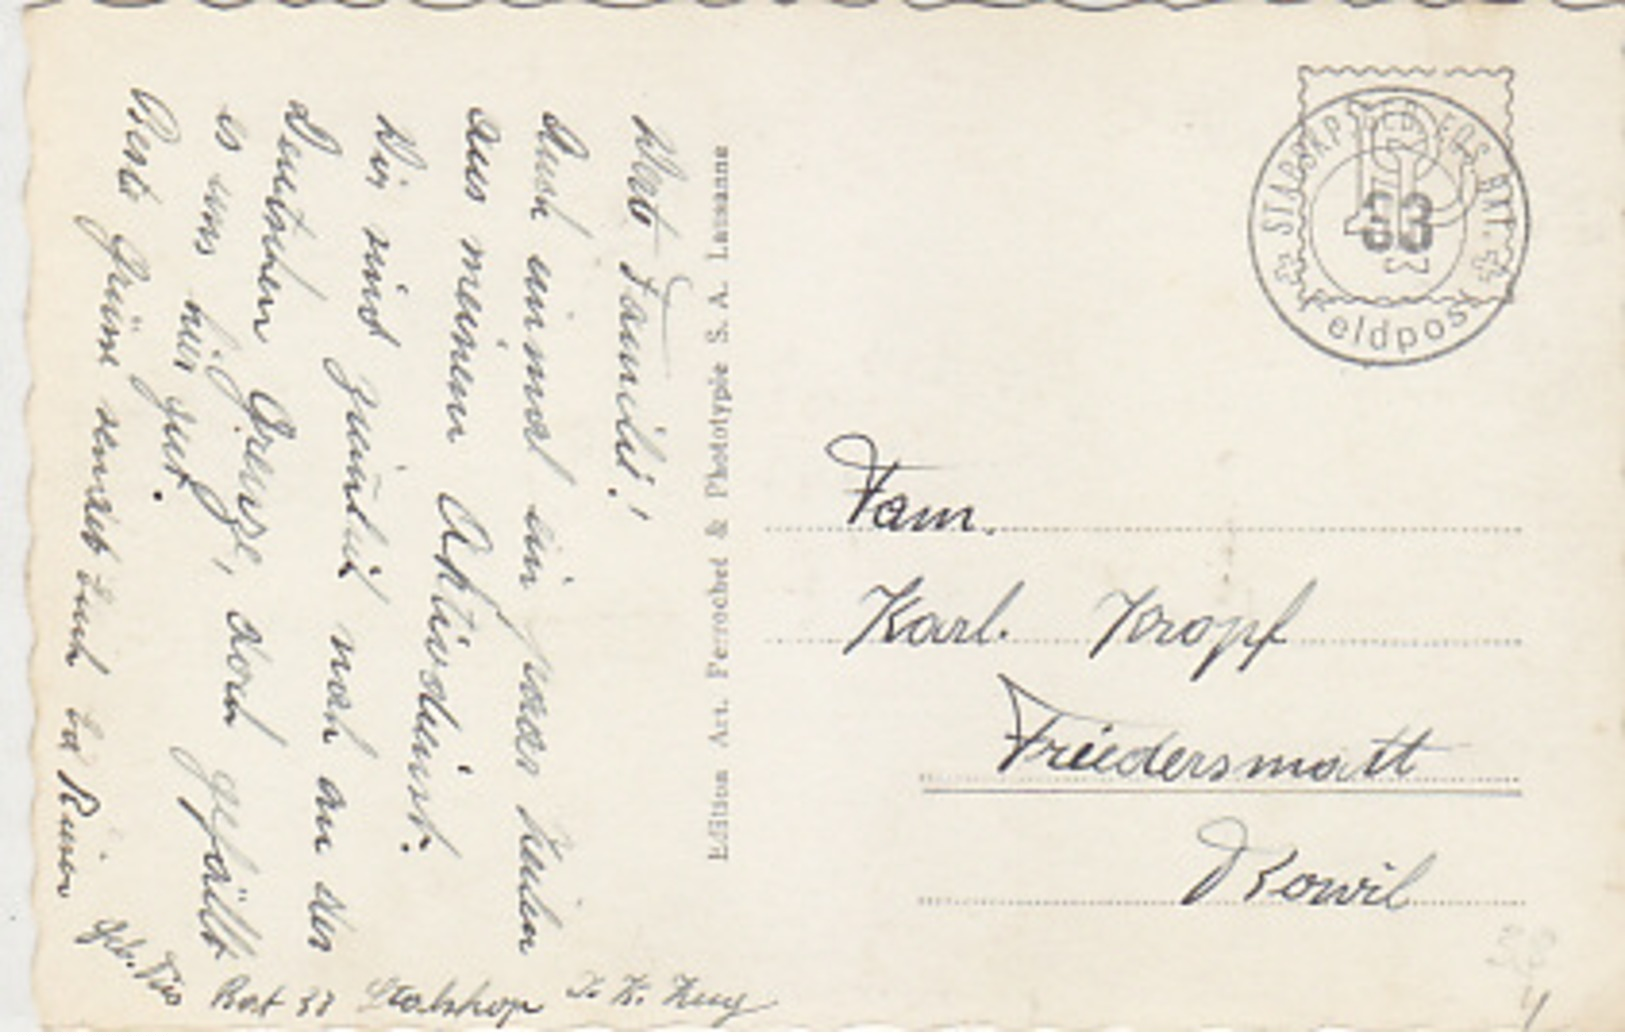 Werte Familie!
Auch einmal ein paar Zeilen
aus meinem Aktivdienst.
Wir sind zumeist noch an der
Deutschen Grenze, doch gefällt
es uns hier gut.
Beste Grüsse sendet Euch
Geb. Füs Bat 33 Stabskop
Edition Art. Perrochet & Phototypie S. A. Lausanne
STABSKP GEB. FÜS. BAT.
33
Feldpost
Fam.
Karl. Kropf
Friedersmatt
Bowil